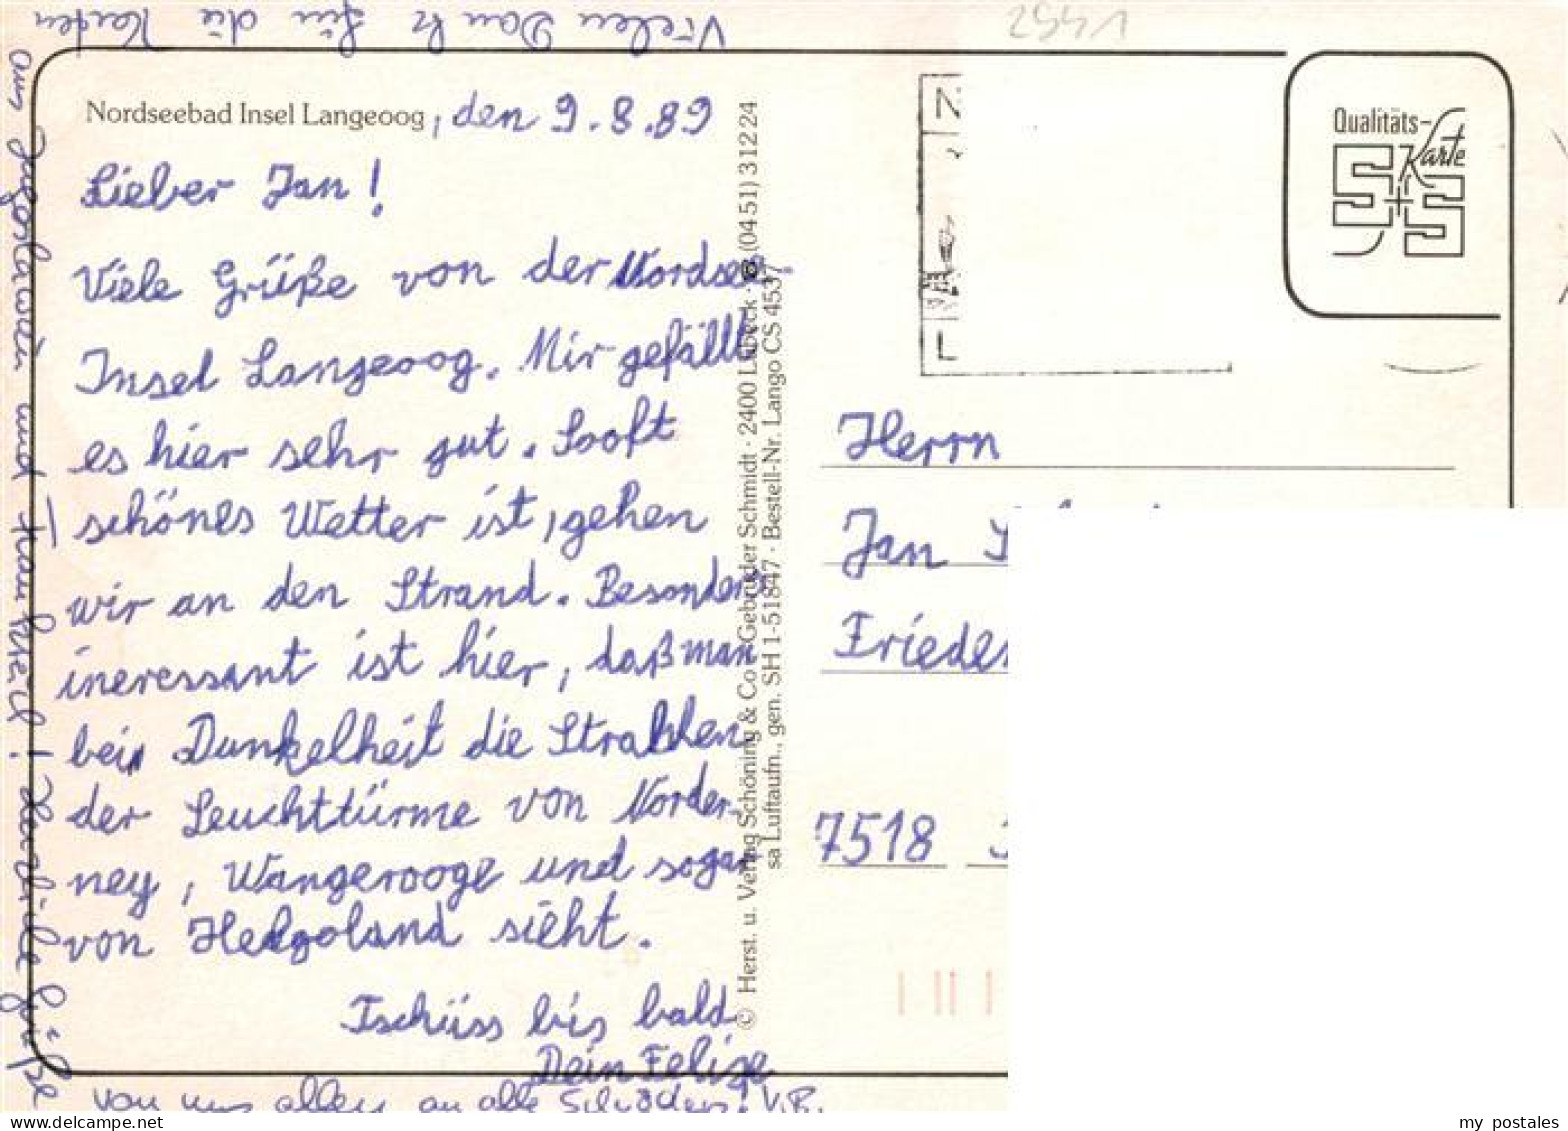 Vielen Dank für die Karten
aus Jugoslawien und Frankreich! Herzliche Grüße
von uns allen an alle Schröders! V.R.
2941
Nordseebad Insel Langeoog, den 9.8.89
Lieber Jan!
Viele Grüße von der Nordsee-
Insel Langeoog. Mir gefällt
es hier sehr gut. Sooft
schönes Wetter ist, gehen
wir an den Strand. Besonders
ineressant ist hier, daß man
bei Dunkelheit die Strahlen
der Leuchttürme von Norder-
ney, Wangerooge und sogar
von Helgoland sieht.
Tschüss bis bald
Dein Felix
© Herst. u. Verlag Schöning & Co + Gebrüder Schmidt · 2400 Lübeck · ☎ (04 51) 3 12 24
sa Luftaufn., gen. SH 1-51847 · Bestell-Nr. Lango CS 4537
Qualitäts-
Karte
S+S
Herrn
Jan
7518
my_postales
www.delcampe.net